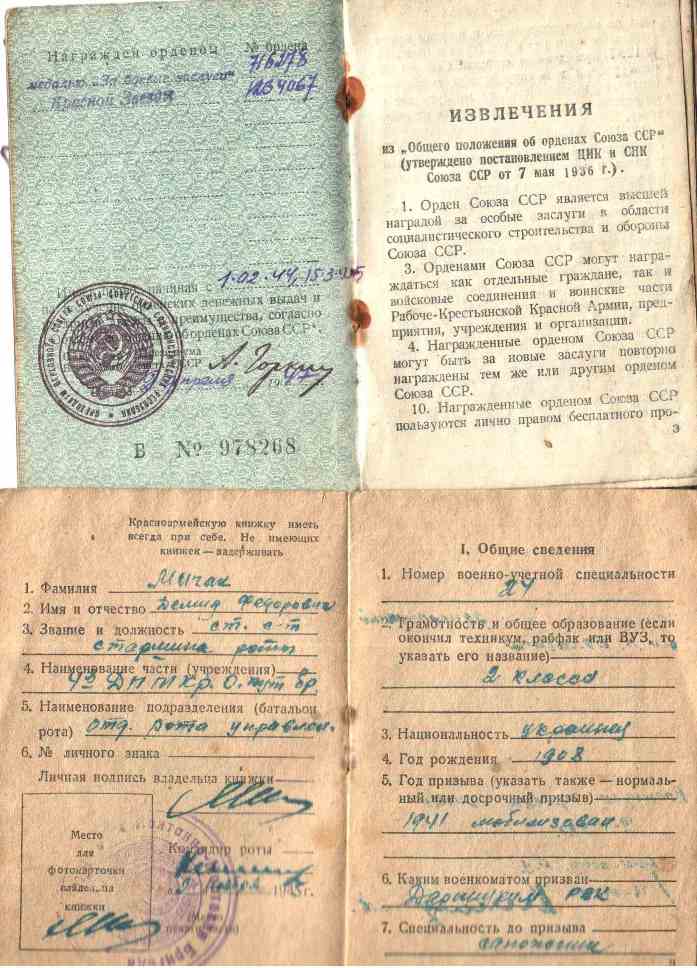 Награжден орденом № ордена
медалью „За боевые заслуги" 716278
Красной Звезды 1234067
1·02·44, 15·3·45
денежных выдач и
преимущества, согласно
об орденах Союза ССР".
А. Горкин
В № 978268
ИЗВЛЕЧЕНИЯ
из „Общего положения об орденах Союза ССР"
(утверждено постановлением ЦИК и СНК
Союза ССР от 7 мая 1936 г.).
1. Орден Союза ССР является высшей
наградой за особые заслуги в области
социалистического строительства и обороны
Союза ССР.
3. Орденами Союза ССР могут награ-
ждаться как отдельные граждане, так и
войсковые соединения и воинские части
Рабоче-Крестьянской Красной Армии, пред-
приятия, учреждения и организации.
4. Награжденные орденом Союза ССР
могут быть за новые заслуги повторно
награждены тем же или другим орденом
Союза ССР.
10. Награжденные орденом Союза ССР
пользуются лично правом бесплатного про-
3
Красноармейскую книжку иметь
всегда при себе. Не имеющих
книжек — задерживать
1. Фамилия
2. Имя и отчество Демид Федорович
3. Звание и должность ст. с-т
старшина роты
4. Наименование части (учреждения)
5. Наименование подразделения (батальон
рота) отд. рота управлен.
6. № личного знака
Личная подпись владельца книжки
Командир роты
Место
для
фотокарточки
владельца
книжки
I. Общие сведения
1. Номер военно-учетной специальности
24
2. Грамотность и общее образование (если
окончил техникум, рабфак или ВУЗ, то
указать его название)
2 класса
3. Национальность украинец
4. Год рождения 1908
5. Год призыва (указать также — нормаль-
ный или досрочный призыв)
1941 мобилизован
6. Каким военкоматом призван
РВК
7. Специальность до призыва
сапожник